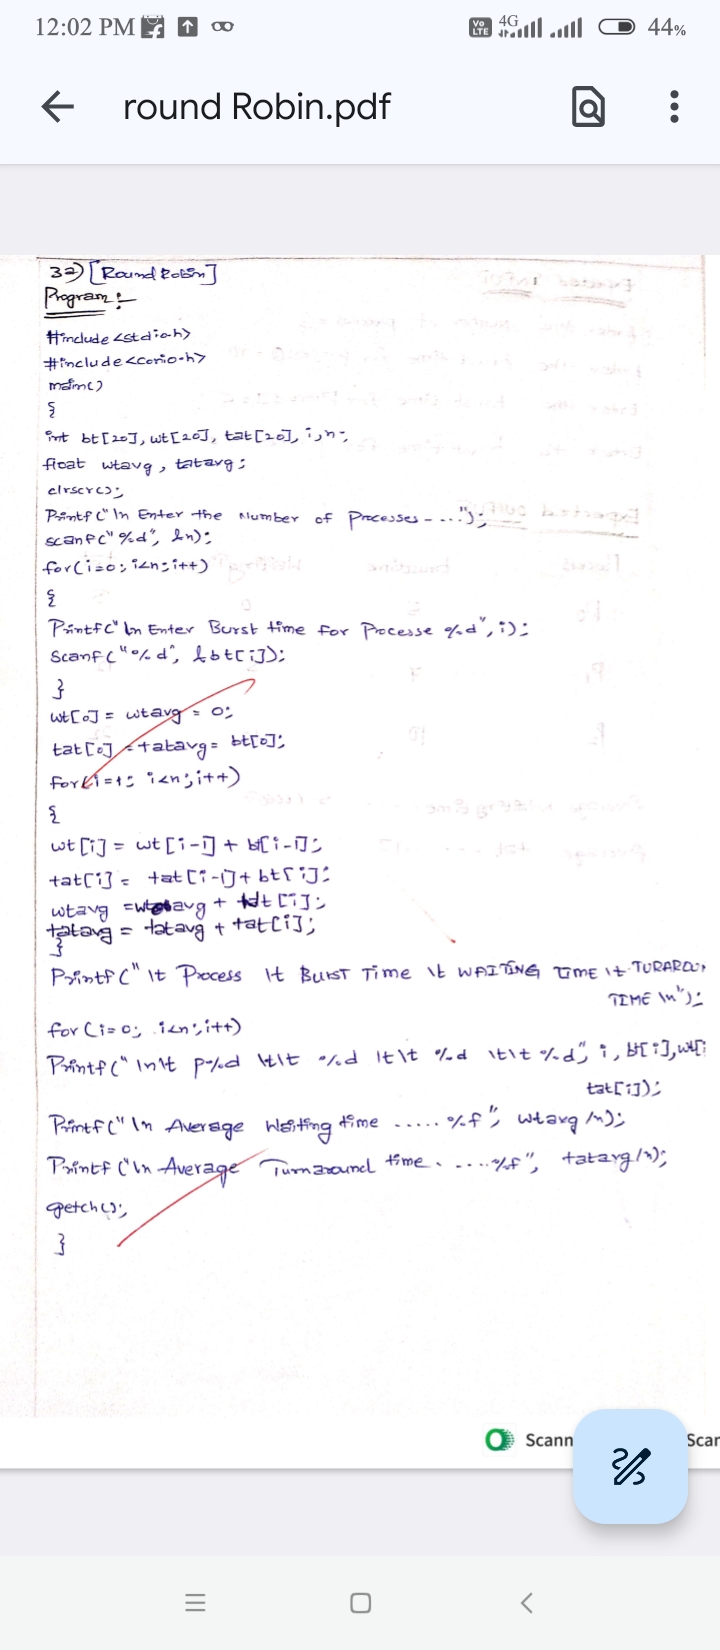 12:02 PM
Vo LTE 4G 44%
round Robin.pdf
32) [Round Robin]
Program:-
#include <stdio.h>
#include <conio.h>
main()
{
int bt[20], wt[20], tat[20], i,n;
float wtavg, tatavg;
clrscr();
Printf("\n Enter the Number of Processes - ...");
scanf("%d", &n);
for(i=0; i<n; i++)
{
Printf("\n Enter Burst time for Pocesse %d", i);
Scanf("%d", &bt[i]);
}
wt[0] = wtavg = 0;
tat[0] = tatavg = bt[0];
for(i=1; i<n; i++)
{
wt[i] = wt[i-1] + bt[i-1];
tat[i] = tat[i-1] + bt[i];
wtavg = wtavg + wt[i];
tatavg = tatavg + tat[i];
}
Printf("\t Process \t BURST Time \t WAITING TIME \t TURAROU
TIME \n");
for (i=0; i<n; i++)
Printf("\n\t P%d \t\t %d \t\t %d \t\t %d", i, bt[i], wt[i
tat[i]);
Printf("\n Average Waiting time ..... %f", wtavg/n);
Printf("\n Average Turnaround time. ....%f", tatavg/n);
getch();
}
Scann
Scar